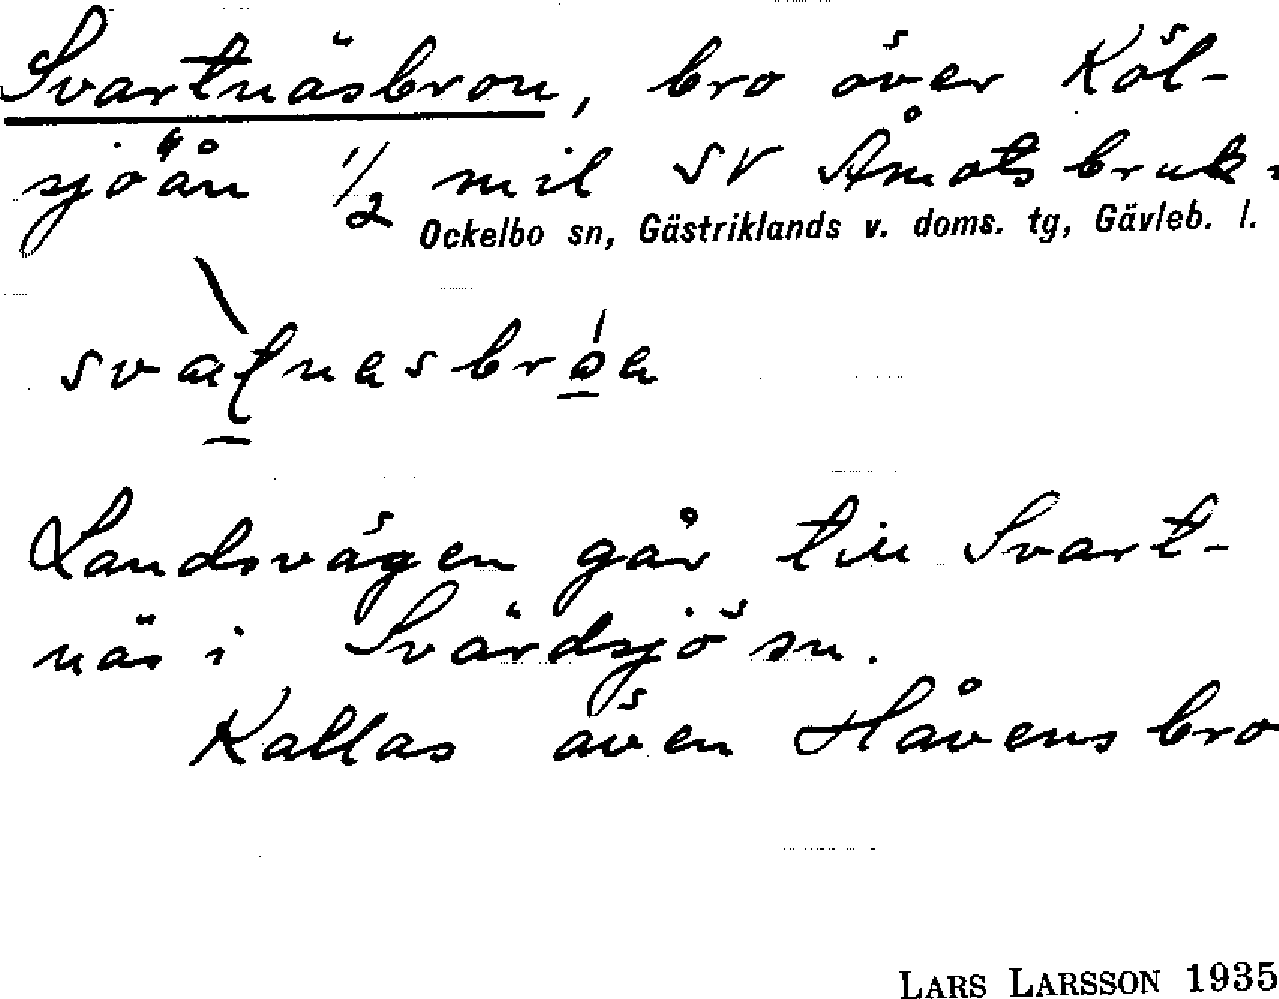 Svartnäsbron, bro över Köl-
sjöån 1/2 mil SV Åmots bruk.
Ockelbo sn, Gästriklands v. doms. tg, Gävleb. l.
Landsvägen går till Svart-
näs i Svärdsjö sn.
Kallas även Håvens bro
LARS LARSSON 1935